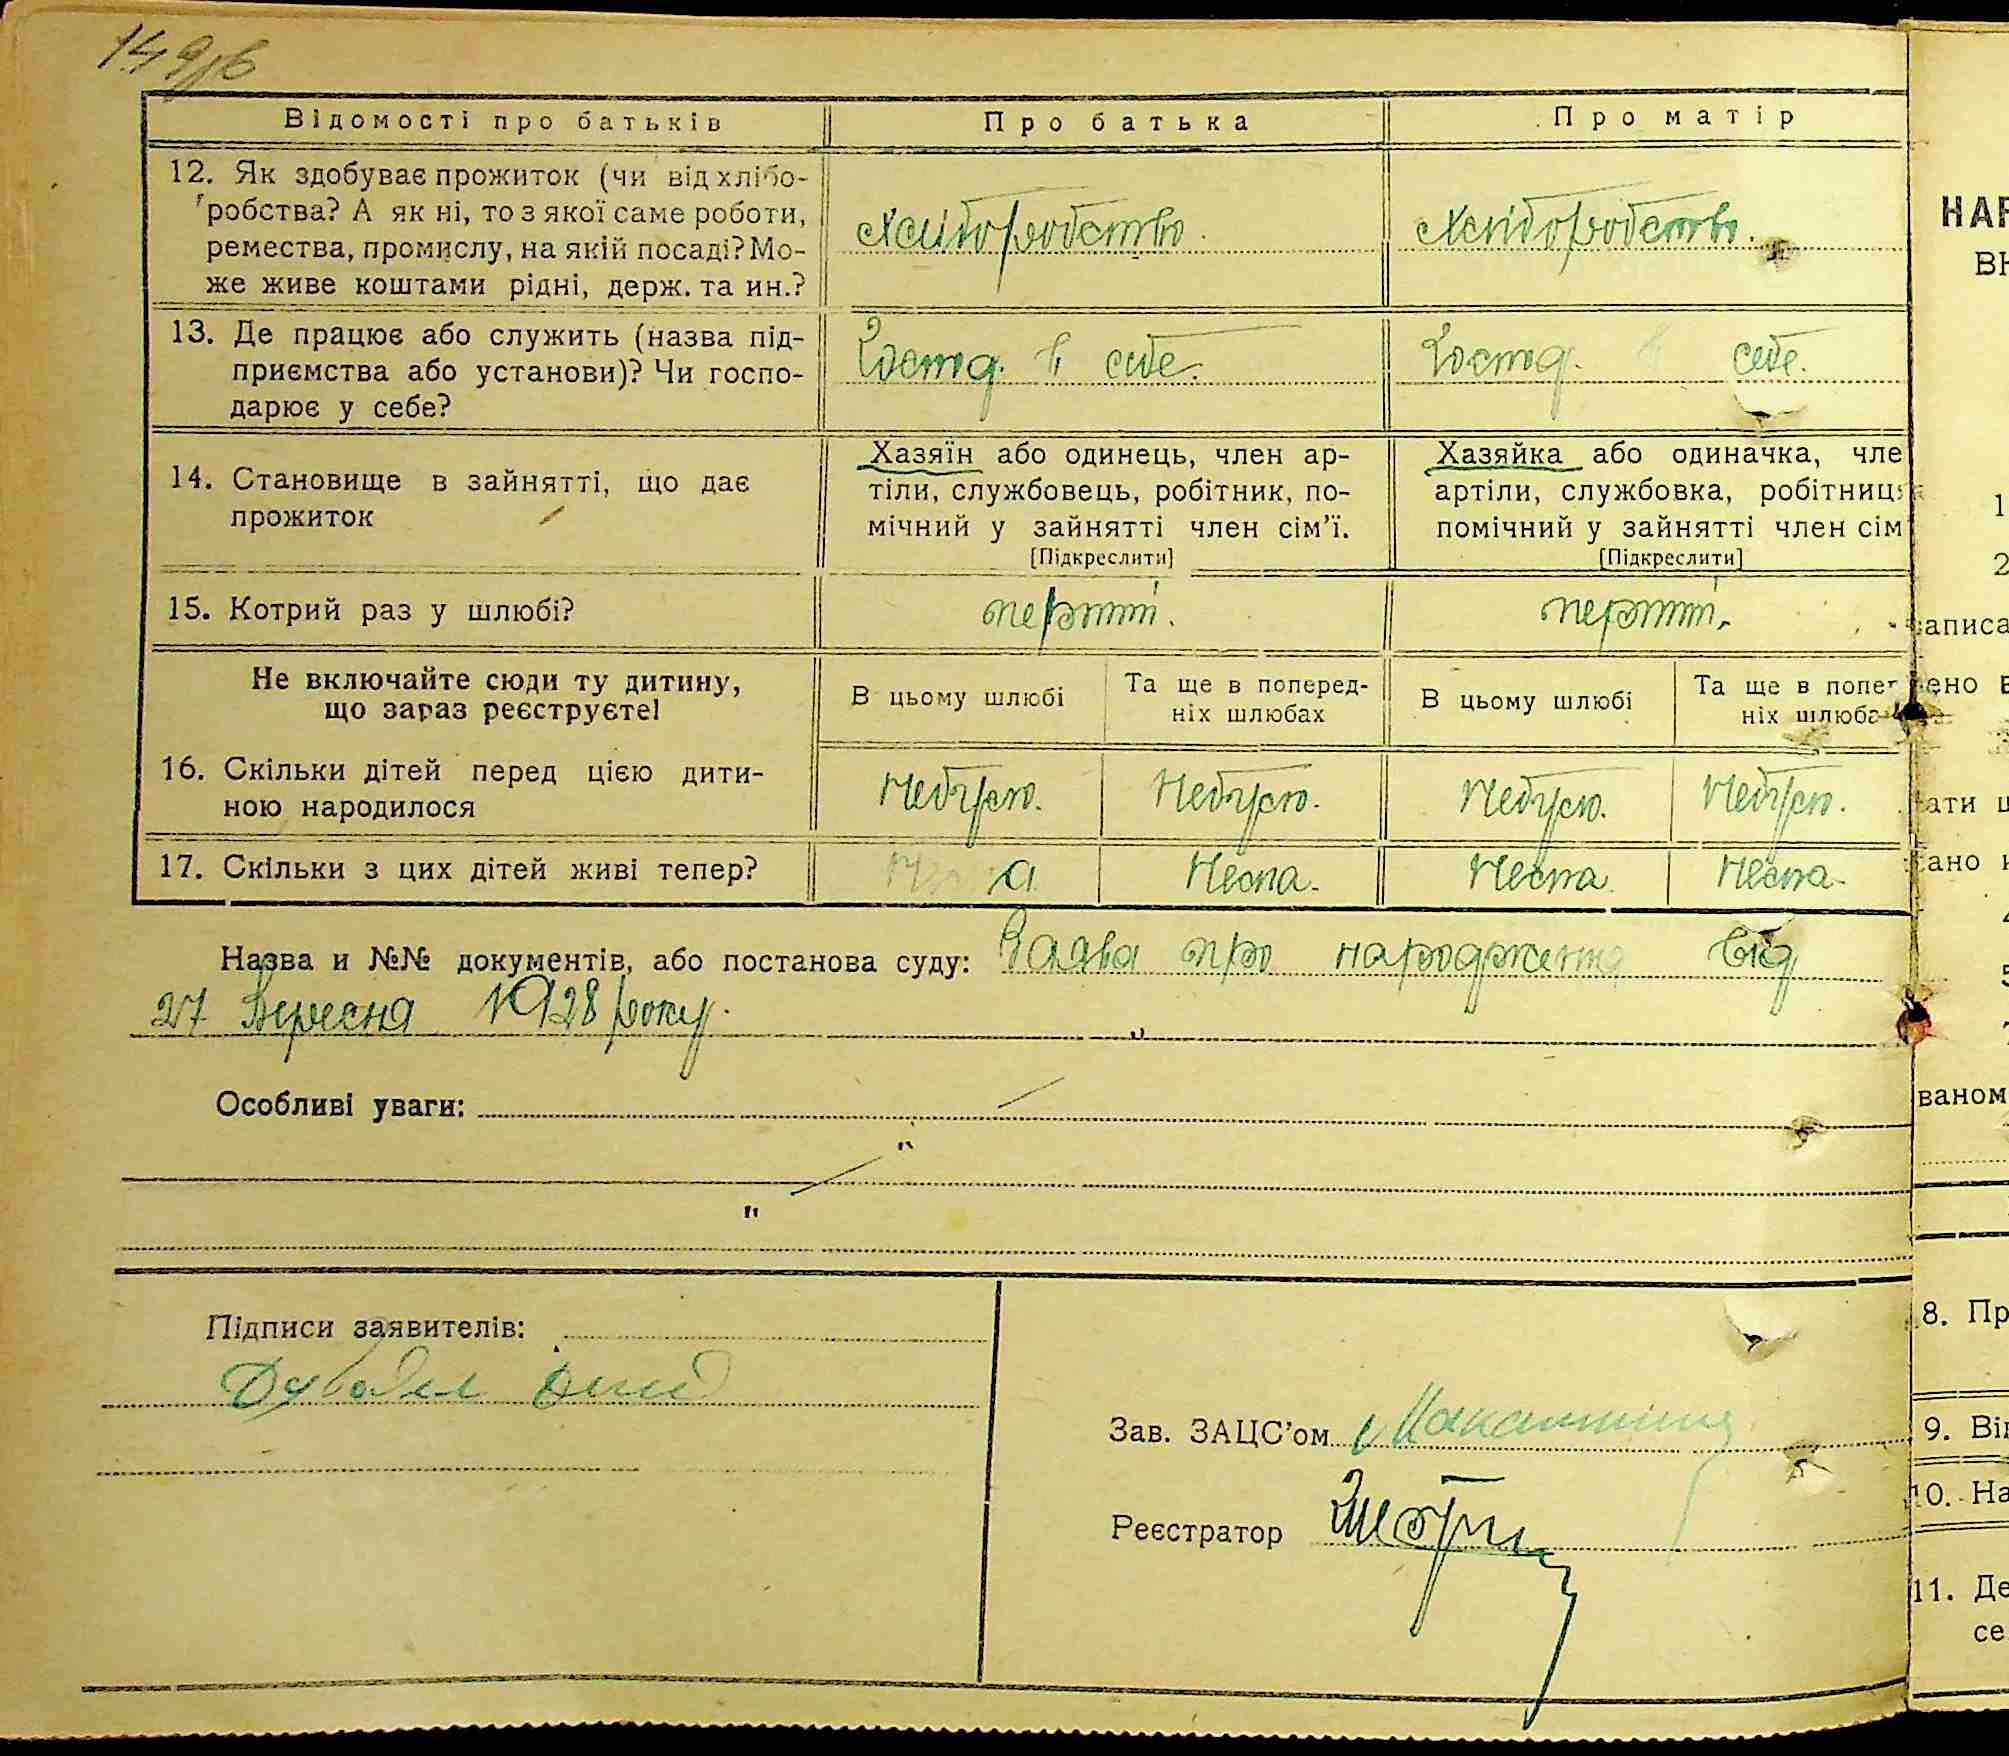 Відомості про батьків
Про батька
Про матір
12. Як здобуває прожиток (чи від хлібо-
робства? А як ні, то з якої саме роботи,
ремества, промислу, на якій посаді? Мо-
же живе коштами рідні, держ. та ин.?
Хліборобство
Хліборобство.
13. Де працює або служить (назва під-
приємства або установи)? Чи госпо-
дарює у себе?
Господ. в себе.
Господ. в себе.
14. Становище в зайнятті, що дає
прожиток
Хазяїн або одинець, член ар-
тіли, службовець, робітник, по-
мічний у зайнятті член сім'ї.
[Підкреслити]
Хазяйка або одиначка, чле
артіли, службовка, робітниця
помічний у зайнятті член сім
[Підкреслити]
15. Котрий раз у шлюбі?
перший.
перший.
Не включайте сюди ту дитину,
що зараз реєструєте!
В цьому шлюбі
Та ще в поперед-
ніх шлюбах
В цьому шлюбі
Та ще в попер
ніх шлюба
16. Скільки дітей перед цією дити-
ною народилося
Небуло.
Небуло.
Небуло.
Небуло.
17. Скільки з цих дітей живі тепер?
Нема.
Нема
Нема.
Назва и №№ документів, або постанова суду: Заява про народження від
27 Вересня 1928 року.
Особливі уваги:
Підписи заявителів:
Зав. ЗАЦС'ом
Реєстратор
НАР
ВК
1
2
записа
ено в
ати ц
ано н
4
5
7
ваном
8. Пр
9. Вік
10. На
11. Де
се